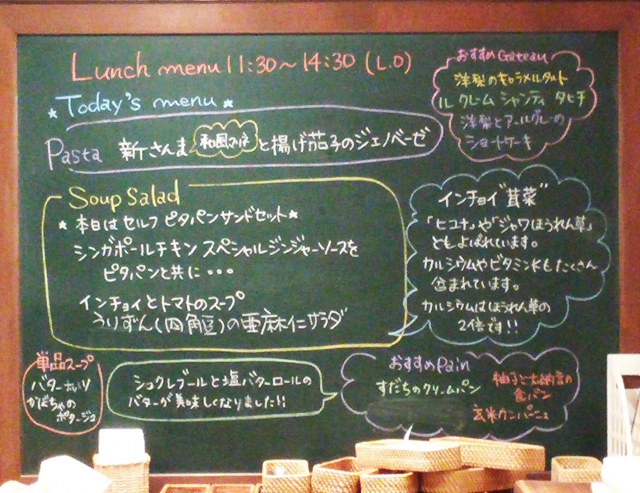 Lunch menu 11:30～14:30 (L.O)
Today's menu
Pasta 新さんま 和風マリネ と揚げ茄子のジェノベーゼ
おすすめ Gateau
洋梨のキャラメルタルト
ル クレーム シャンティ タヒチ
洋梨とアールグレーの
ショートケーキ
Soup Salad
★本日はセルフ ピタパンサンドセット★
シンガポールチキン スペシャルジンジャーソースを
ピタパンと共に・・・
インチョイとトマトのスープ
うりずん(四角豆)の亜麻仁サラダ
インチョイ"苋菜"
「ヒユナ」や「ジャワほうれん草」
ともよばれています。
カルシウムやビタミンKもたくさん
含まれています。
カルシウムはほうれん草の
2倍です!!
単品スープ
バターナッツ
かぼちゃの
ポタージュ
ショクレブールと塩バターロールの
バターが美味しくなりました!!
おすすめPain
すだちのクリームパン
柚子と大納言の
食パン
玄米カンパーニュ